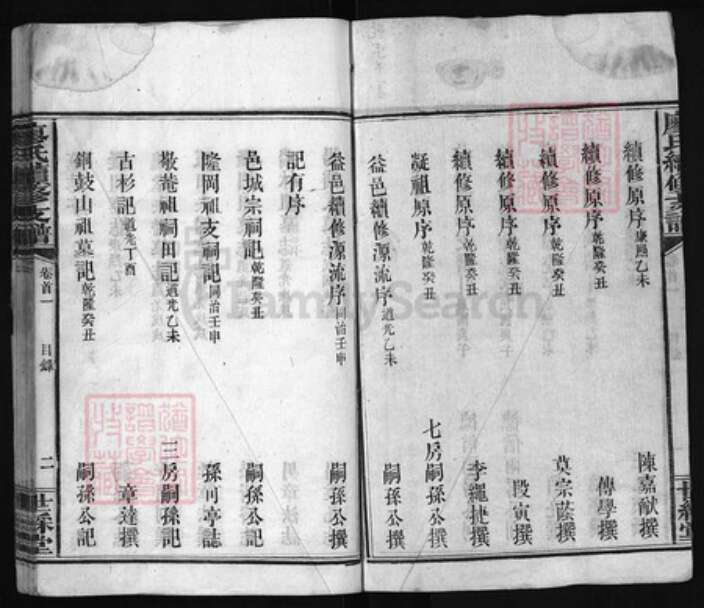 廖氏續修支譜
世綵堂
續修原序康熙乙未 陳嘉猷撰
續修原序乾隆癸丑 傅學撰
續修原序乾隆癸丑 莫宗蔭撰
續修原序乾隆癸丑 段寅撰
凝祖原序乾隆癸丑 李繩捷撰
七房嗣孫公撰
益邑續修源流序道光乙未 嗣孫公撰
益邑續修源流序同治壬申 嗣孫公撰
記有序
邑城宗祠記乾隆癸丑 嗣孫公記
隆岡祖支祠記同治壬申 孫可亭誌
敬菴祖祠田記道光乙未 三房嗣孫記
古杉記道光丁酉 章達撰
銅鼓山祖墓記乾隆癸丑 嗣孫公記
廖氏續修支譜
卷首一
目錄
二
世綵堂
FamilySearch